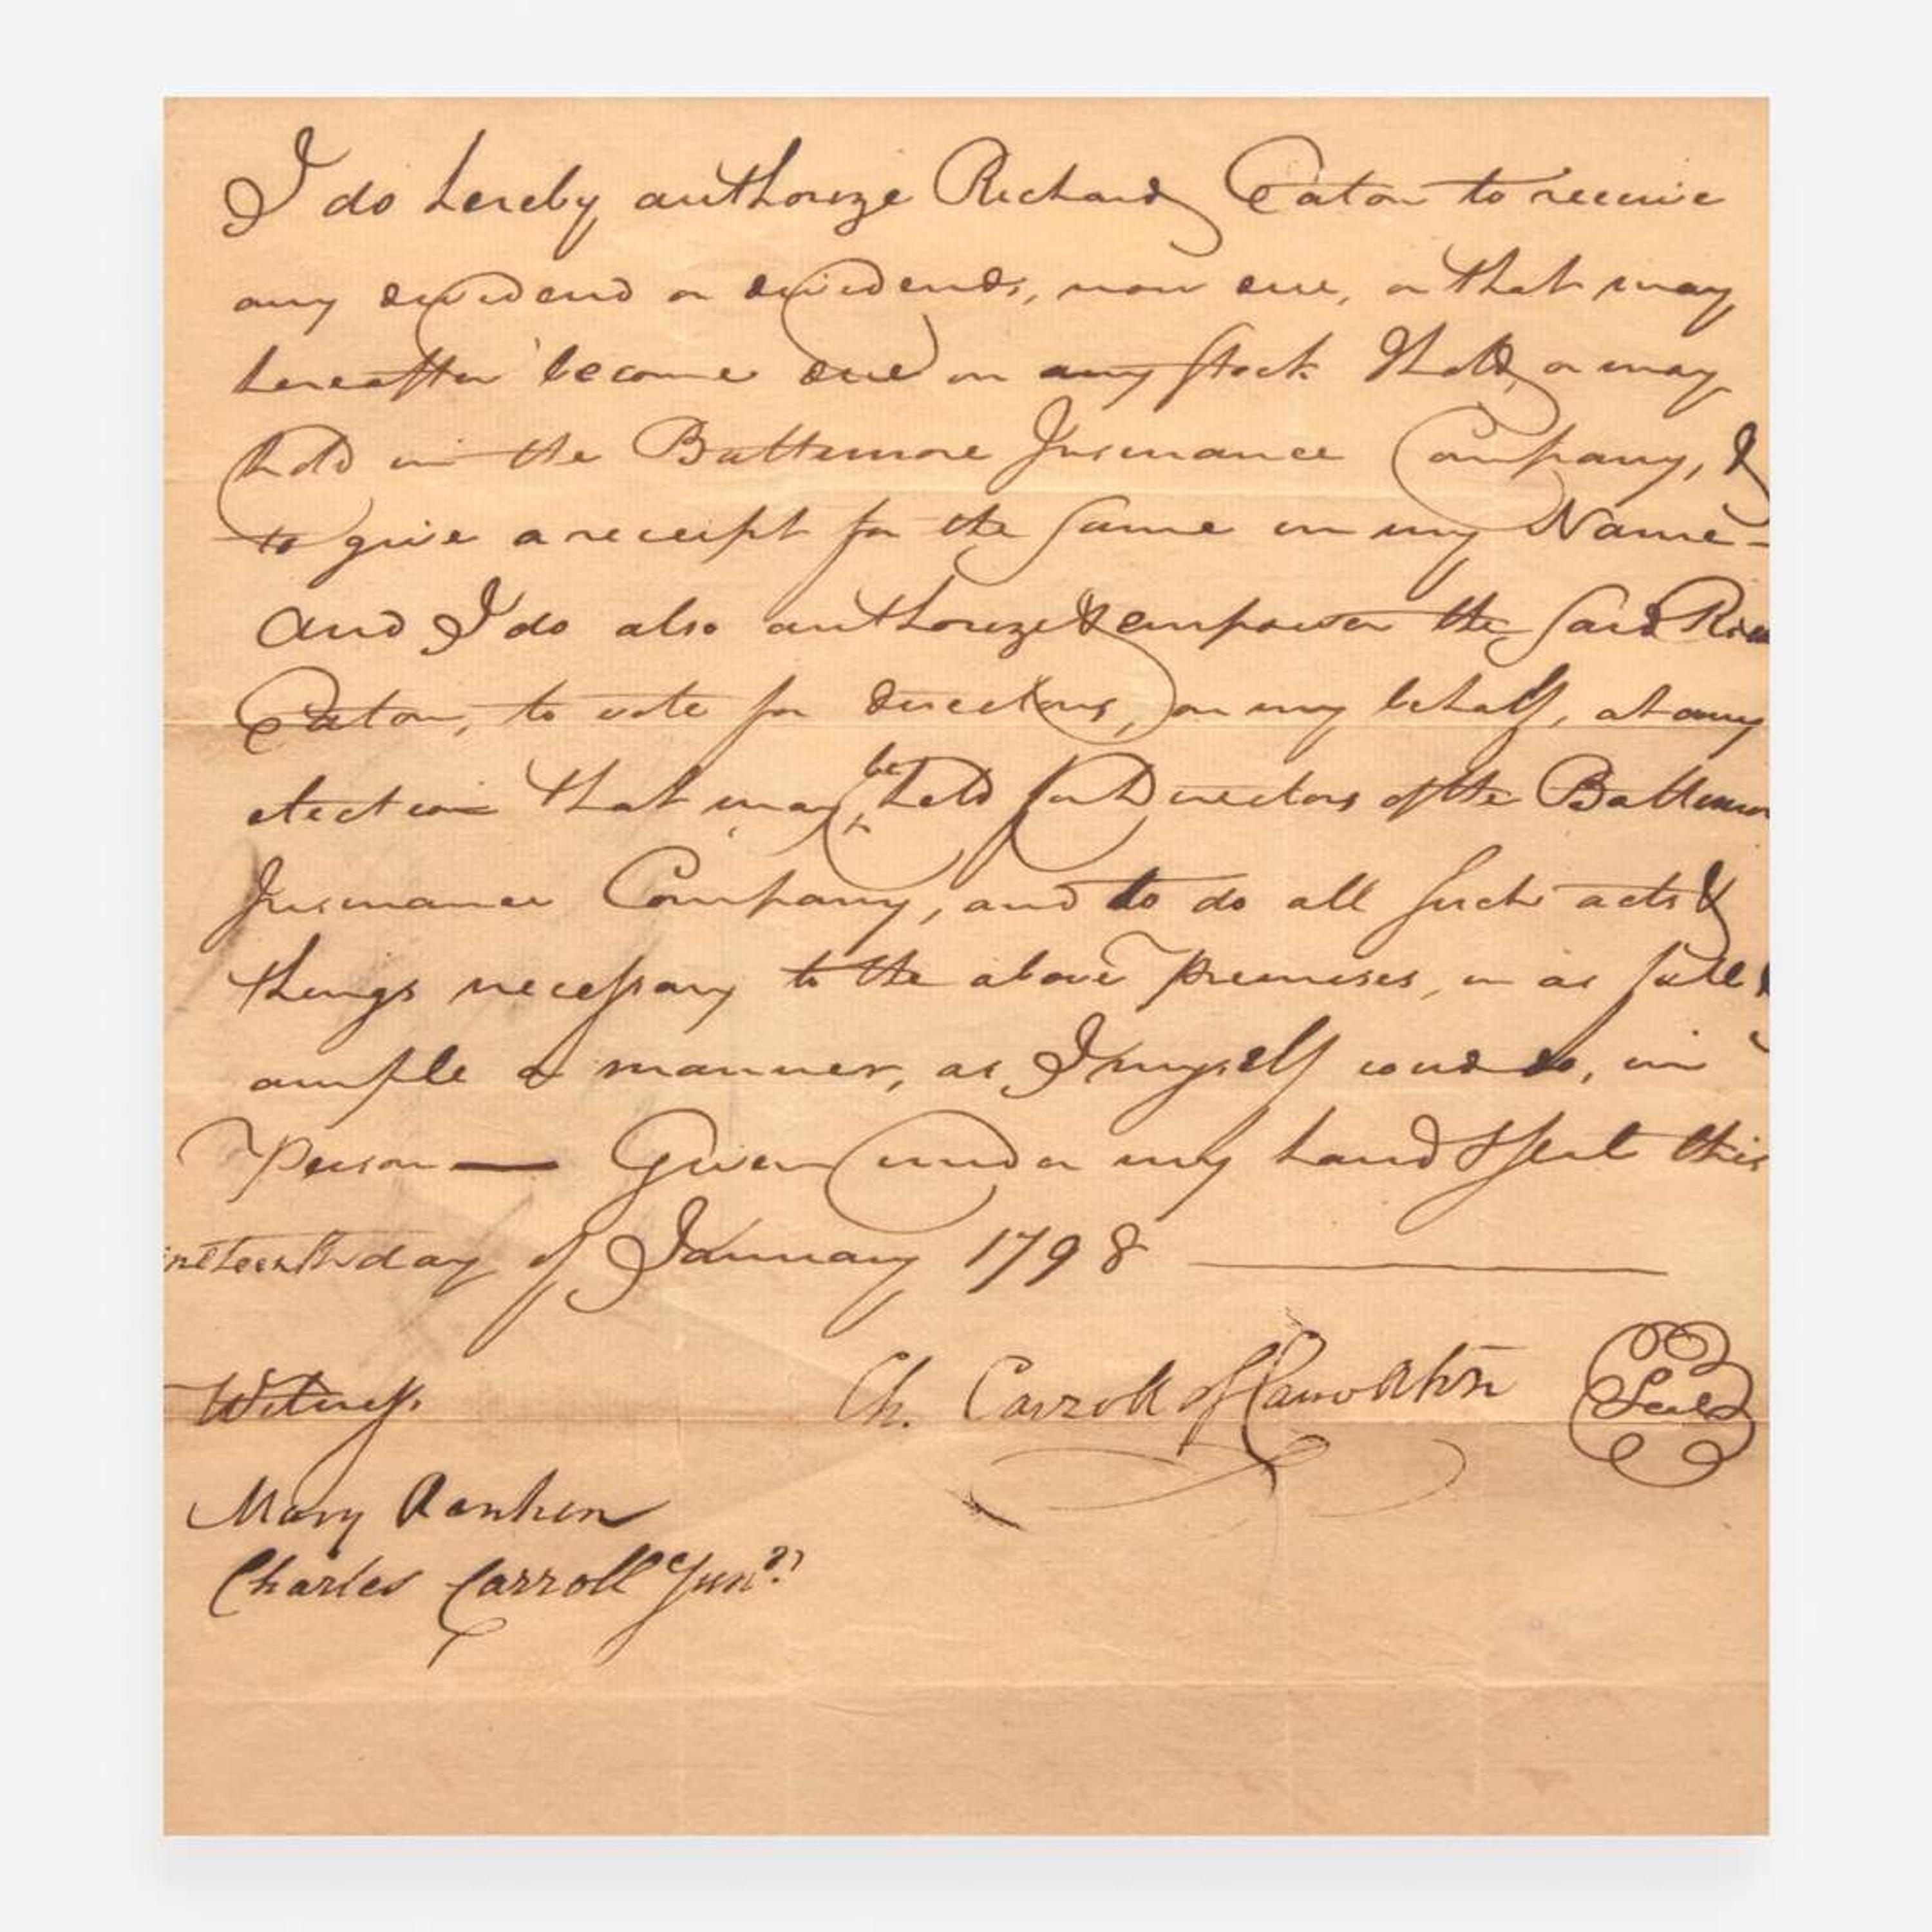 I do hereby authorize Richard Caton to receive
any dividend or dividends, now due, or that may
hereafter become due on any stock I hold, or may
hold in the Baltimore Insurance Company, &
to give a receipt for the same in my Name-
And I do also authorize & empower the said
Caton, to vote for directors, on my behalf, at any
election that may be held for Directors of the
Insurance Company, and to do all such acts &
things necessary to the above premises, in as full &
ample a manner, as I myself coud do, in
Person — Given under my hand & seal this
day of January 1798
Witness.
Ch. Carroll of Carrollton
Seal
Mary Rankin
Charles Carroll Junr.